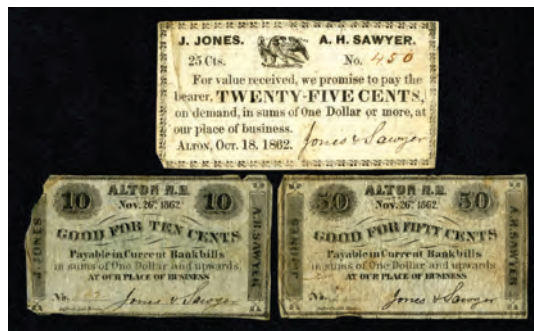 J. JONES. A. H. SAWYER.
25 Cts. No. 450
For value received, we promise to pay the
bearer, TWENTY-FIVE CENTS,
on demand, in sums of One Dollar or more, at
our place of business.
ALTON, OCT. 18. 1862. Jones & Sawyer
ALTON N.H.
10 Nov. 26th 1862 10
GOOD FOR TEN CENTS
Payable in Current Bankbills
in sums of One Dollar and upwards
AT OUR PLACE OF BUSINESS
No. Jones & Sawyer
J. JONES
A.H. SAWYER
ALTON N.H.
50 Nov. 26th 1862 50
GOOD FOR FIFTY CENTS
Payable in Current Bankbills
in sums of One Dollar and upwards
AT OUR PLACE OF BUSINESS
No. Jones & Sawyer
J. JONES
A.H. SAWYER